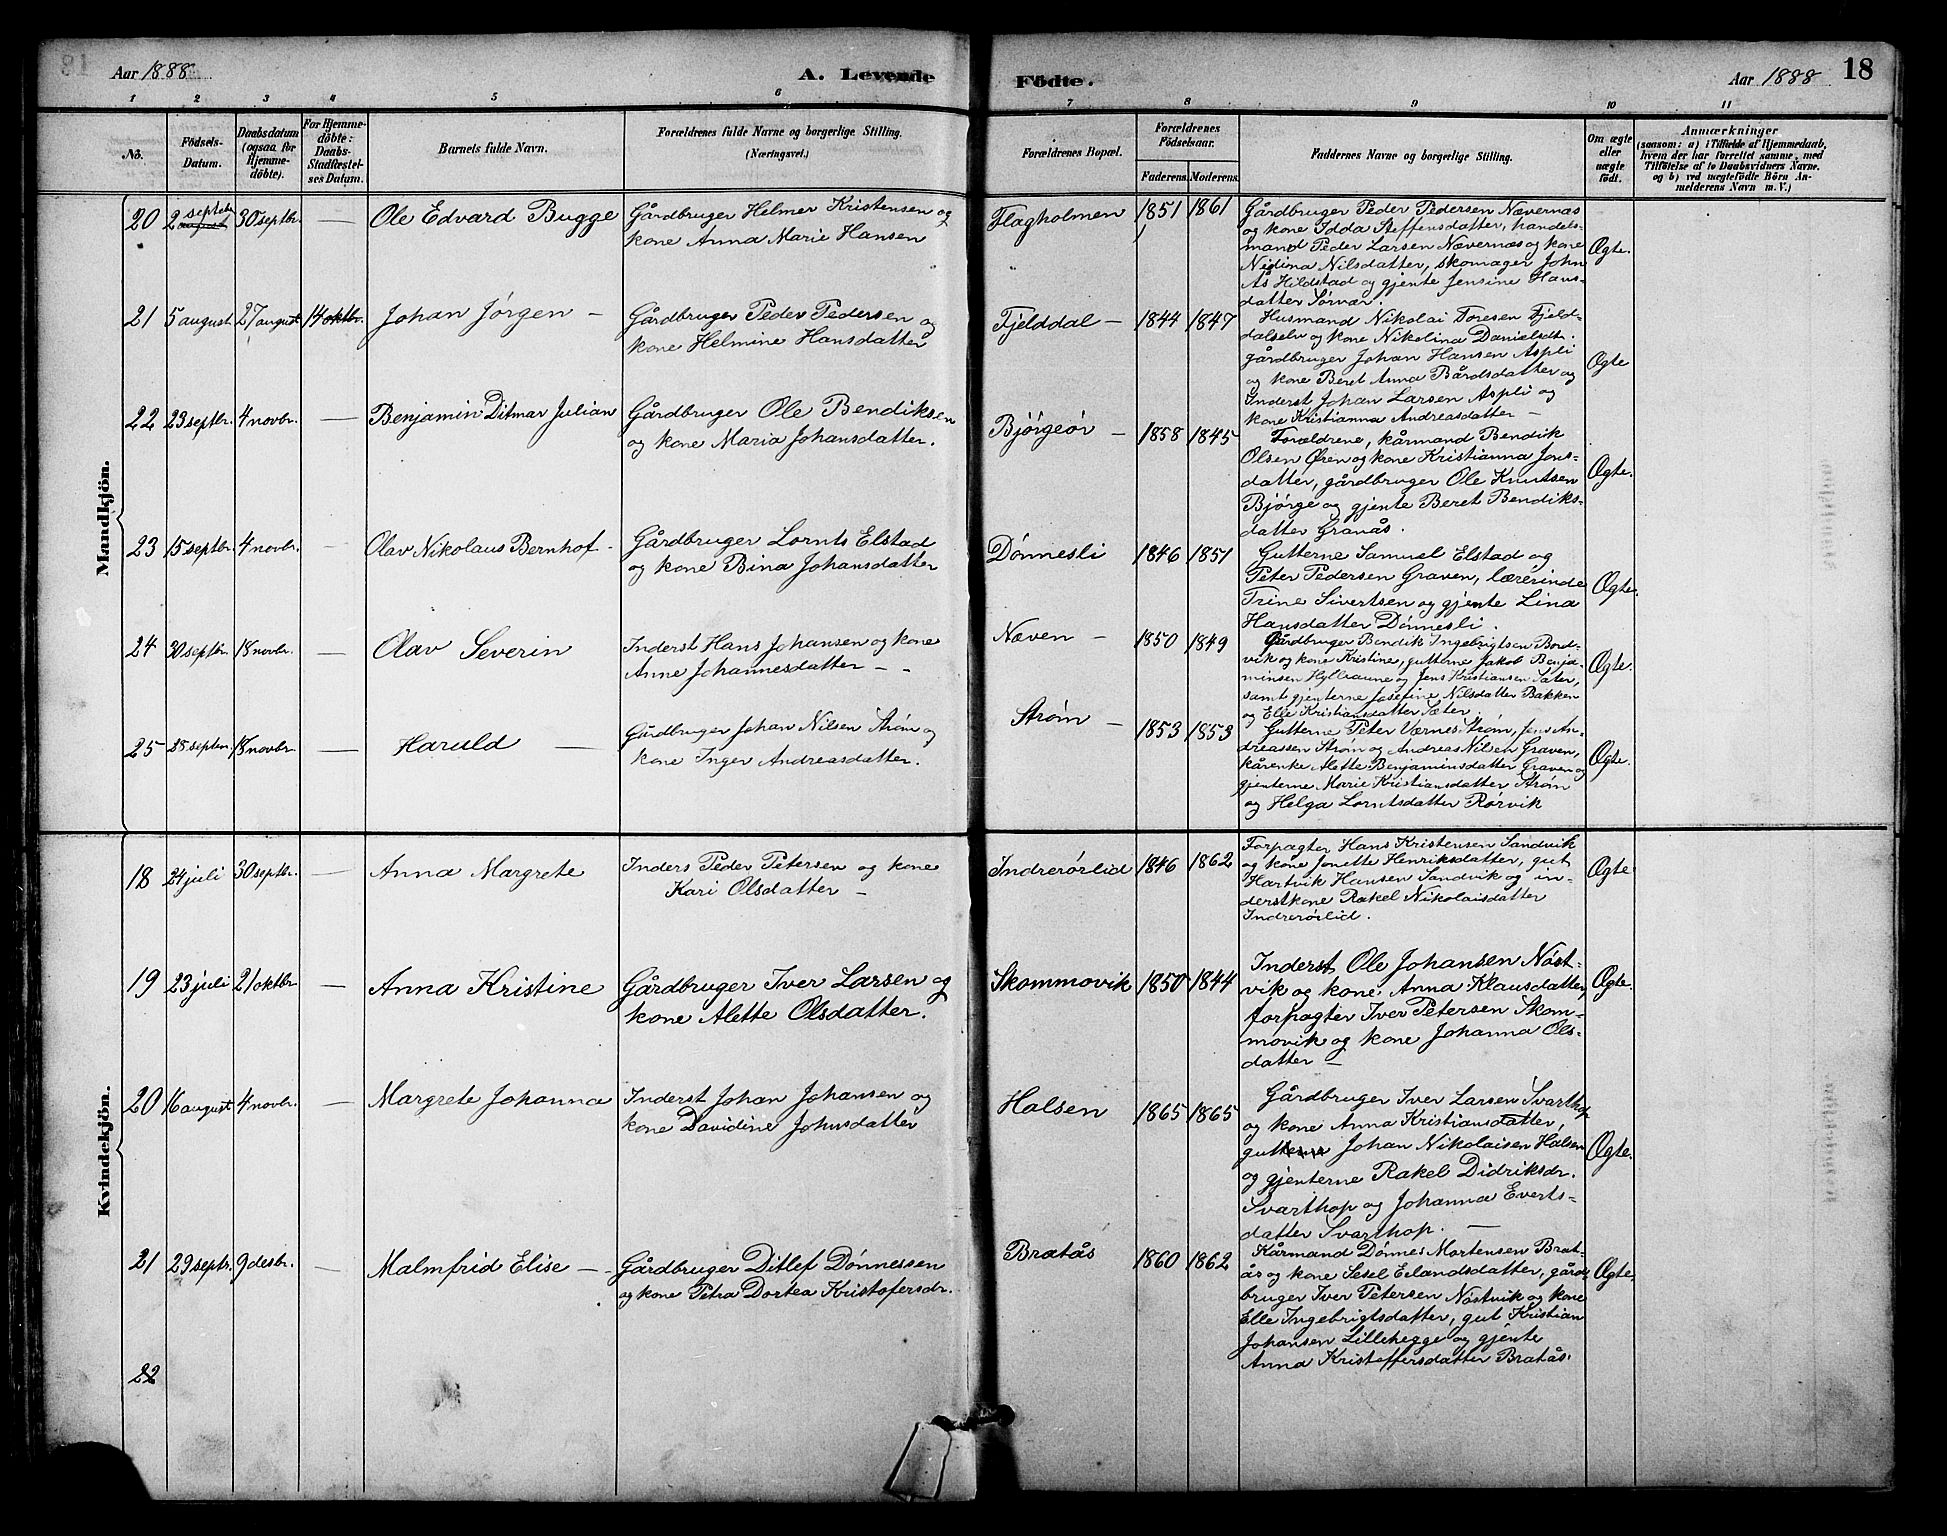 Aar 1888
A. Levende
Födte.
Aar 1888
18
1 2 3 4 5 6 7 8 9 10 11
No.
Födsels-Datum.
Daabsdatum (ogsaa for Hjemmedöbte).
For Hjemmedöbte: Daabs-Stadfæstelses Datum.
Barnets fulde Navn.
Forældrenes fulde Navne og borgerlige Stilling.
(Næringsvei.)
Forældrenes Bopæl.
Forældrenes Födselsaar.
Faderens. Moderens.
Faddernes Navne og borgerlige Stilling.
Om ægte eller uægte födt.
Anmærkninger
(saasom: a) i Tilfælde af Hjemmedaab,
hvem der har forrettet samme, med
Tilföielse af to Daabsvidners Navne,
og b) ved uægtefödte Börn An-
melderens Navn m. V.)
Mandkjön.
20 2 septbr. august 30 septbr. — Ole Edvard Bugge
Gårdbruger Helmer Kristensen og
kone Anna Marie Hansen
Flagholmen 1851 1861
Gårdbruger Peder Pedersen Nævernæs
og kone Idda Steffensdatter, handels-
mand Peder Larsen Nævernæs og kone
Nidina Nilsdatter, skomager John
Ås Hildstad og gjente Jensine Hans-
datter Sørvær.
Ægte.
21 5 august 27 august 14 oktbr. Johan Jørgen —
Gårdbruger Peder Pedersen og
kone Helmine Hansdatter
Fjelddal — 1844 1847
Husmand Nikolai Toresen Fjeld-
dalselv og kone Nikolina Danielsdtr.
gårdbruger Johan Hansen Aspli
og kone Beret Anna Bårdsdatter og
Inderst Johan Larsen Aspli og
kone Kristianna Andreasdatter —
Ægte
22 23 septbr. 4 novbr. — Benjamin Ditmar Julian
Gårdbruger Ole Bendiksen
og kone Maria Johansdatter.
Bjørgeør — 1858 1845
Forældrene, kårmand Bendik
Olsen Øren og kone Kristianna Jons-
datter, gårdbruger Ole Knutsen
Bjørge og gjente Beret Bendiks-
datter Granås.
Ægte.
23 15 septbr. 4 novbr. — Olav Nikolaus Bernhof —
Gårdbruger Lornts Elstad
og kone Bina Johansdatter
Dønnesli 1846 1851
Gutterne Samuel Elstad og
Peter Pedersen Graven, lærerinde
Trine Sivertsen og gjente Lina
Hansdatter Dønnesli.
Ægte.
24 30 septbr. 18 novbr. — Olav Severin
Inderst Hans Johansen og kone
Anne Johannesdatter — -
Næven — 1850 1849
Gårdbruger Bendik Ingebrigtsen Bord-
vik og kone Kristine, gutterne Jakob Benja-
minsen Hyllraune og Jens Kristiansen Sæter,
samt gjenterne Josefine Nilsdatter Bakken
og Elle Kristiansdatter Sæter.
Ægte.
25 28 septbr. 18 novbr. — Harald —
Gårdbruger Johan Nilsen Strøm og
kone Inger Andreasdatter.
Strøm — 1853 1853
Gutterne Peter Værnes Strøm, Jens An-
dreassen Strøm og Andreas Nilsen Graven,
kårenke Alette Benjaminsdatter Graven og
gjenterne Marie Kristiansdatter Strøm
og Helga Lorntsdatter Rørvik
Ægte.
Kvindekjön.
18 24 juli 30 septbr. — Anna Margrete
Inders Peder Petersen og kone
Kari Olsdatter —
Indrerørlid 1846 1862
Forpagter Hans Kristensen Sandvik
og kone Jonette Henriksdatter, gut
Hartvik Hansen Sandvik og in-
derstkone Rakel Nikolaisdatter
Indrerørlid.
Ægte
19 23 juli 21 oktbr — Anna Kristine
Gårdbruger Iver Larsen og
kone Alette Olsdatter.
Skommovik 1850 1844
Inderst Ole Johansen Nøst-
vik og kone Anna Klausdatter,
forpagter Iver Petersen Skom-
movik og kone Johanna Ols-
datter —
Ægte.
20 16 august 4 novbr. — Margrete Johanna
Inderst Johan Johansen og
kone Davidine Johnsdatter
Halsen 1865 1865
Gårdbruger Iver Larsen Svarthop
og kone Anna Kristiansdatter,
gutterne Johan Nikolaisen Halsen
og gjenterne Rakel Didriksdr.
Svarthop og Johanna Everts-
datter Svarthop. —
Ægte.
21 29 septr. 9 desbr. — Malmfrid Elise —
Gårdbruger Ditlef Dønnessen
og kone Petra Dortea Kristofersdr.
Bratås 1860 1862
Kårmand Dønnes Mortensen Brat-
ås og kone Sesel Erlandsdatter, gård-
bruger Iver Petersen Nøstvik og kone
Elle Ingebrigtsdatter, gut Kristian
Johansen Lillehegge og gjente
Anna Kristoffersdatter Bratås.
Ægte.
22